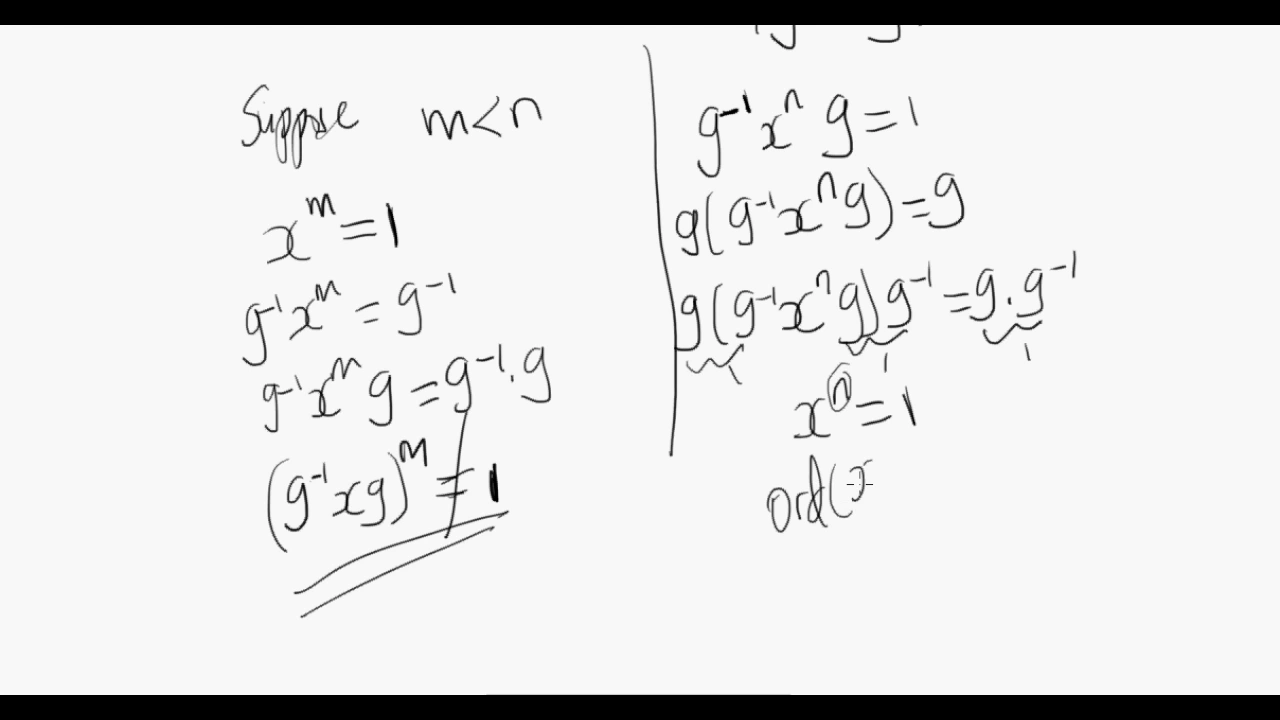 Suppose m<n
x^m = 1
g⁻¹x^m = g⁻¹
g⁻¹x^m g = g⁻¹.g
(g⁻¹xg)^m ≠ 1
g⁻¹x^n g = 1
g(g⁻¹x^n g) = g
g(g⁻¹x^n g)g⁻¹ = g.g⁻¹
1 1 1
x^n = 1
ord(x